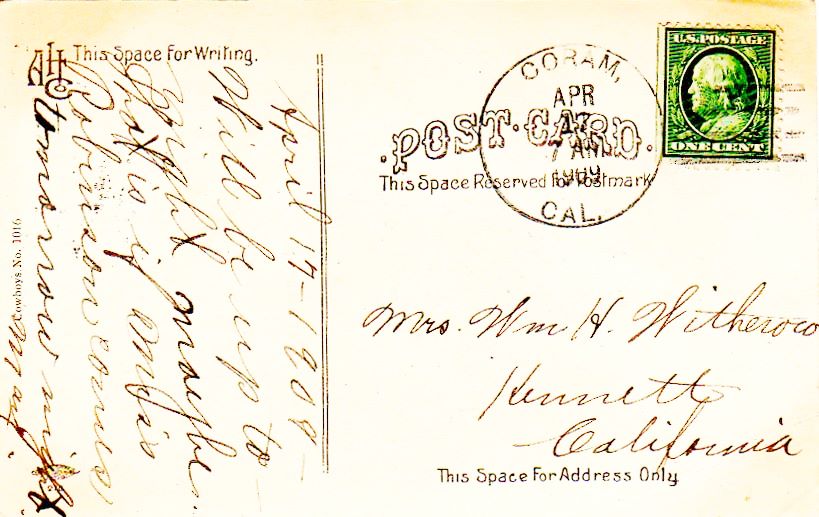 This Space For Writing.
April 17-1909-
Will be up to-
night maybe.
That is if
Robinson comes
tomorrow night
May.
Cowboys. No. 1016
U.S. POSTAGE
ONE CENT
CORAM,
APR
17
7 AM
1909
CAL.
POST CARD.
This Space Reserved for Postmark
Mrs. Wm H. Witherow
Kennett
California
This Space For Address Only